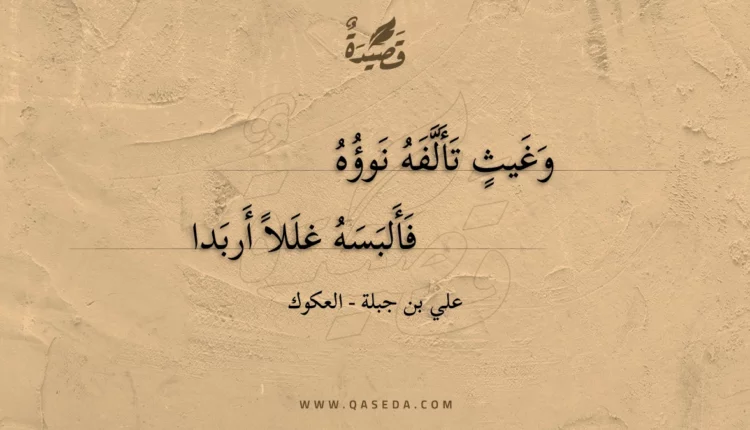 قَصِيْدَةٌ
وَغَيثٍ تَأَلَّفَهُ نَوؤُهُ
فَأَلبَسَهُ غلَلاً أَربَدا
علي بن جبلة - العكوك
WWW.QASEDA.COM